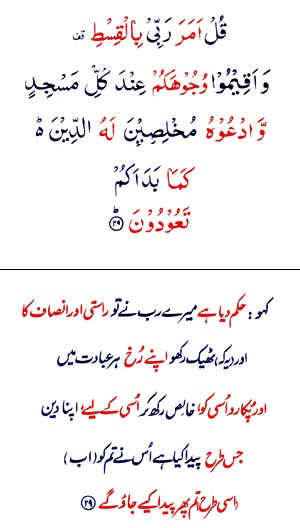 قُلْ اَمَرَ رَبِّیْ بِالْقِسْطِ قف
وَ اَقِیْمُوْا وُجُوْهَكُمْ عِنْدَ كُلِّ مَسْجِدٍ
وَّ ادْعُوْهُ مُخْلِصِیْنَ لَهُ الدِّیْنَ ؕ
كَمَا بَدَاَكُمْ
تَعُوْدُوْنَ ؕ ۲۹
کہو : حکم دیا ہے میرے رب نے تو راستی اور انصاف کا
اور یہ کہ ٹھیک رکھو اپنے رُخ ہر عبادت میں
اور پُکارو اُسی کو خالِص رکھ کر اُسی کے لیے اپنا دین
جس طرح پیدا کیا ہے اُس نے تم کو ( اب )
اسی طرح تم پھر پیدا کیے جاؤ گے ۲۹